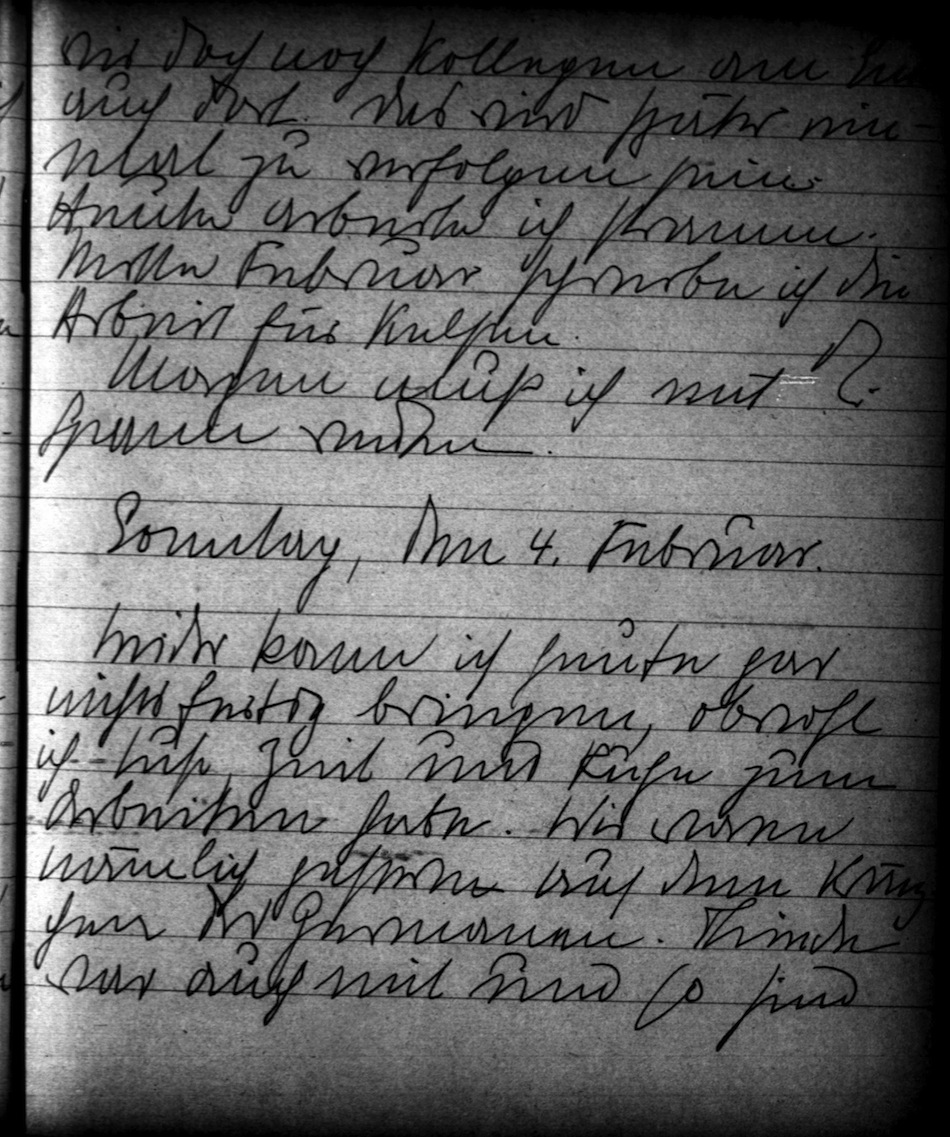 wir doch noch Kollegen am
auch dort. Das wird später ein-
mal zu verfolgen sein.
Heute arbeite ich stramm.
Mitte Februar schreibe ich die
Arbeit für
Morgen muß ich mit R.
Spanien reden.
Sonntag, den 4. Februar.
Leider kann ich heute gar
nichts fertig bringen, obwohl
ich Lust, Zeit und Ruhe zum
Arbeiten habe. Wir waren
nämlich gestern auf dem
der Germanen.
war auch mit und so sind